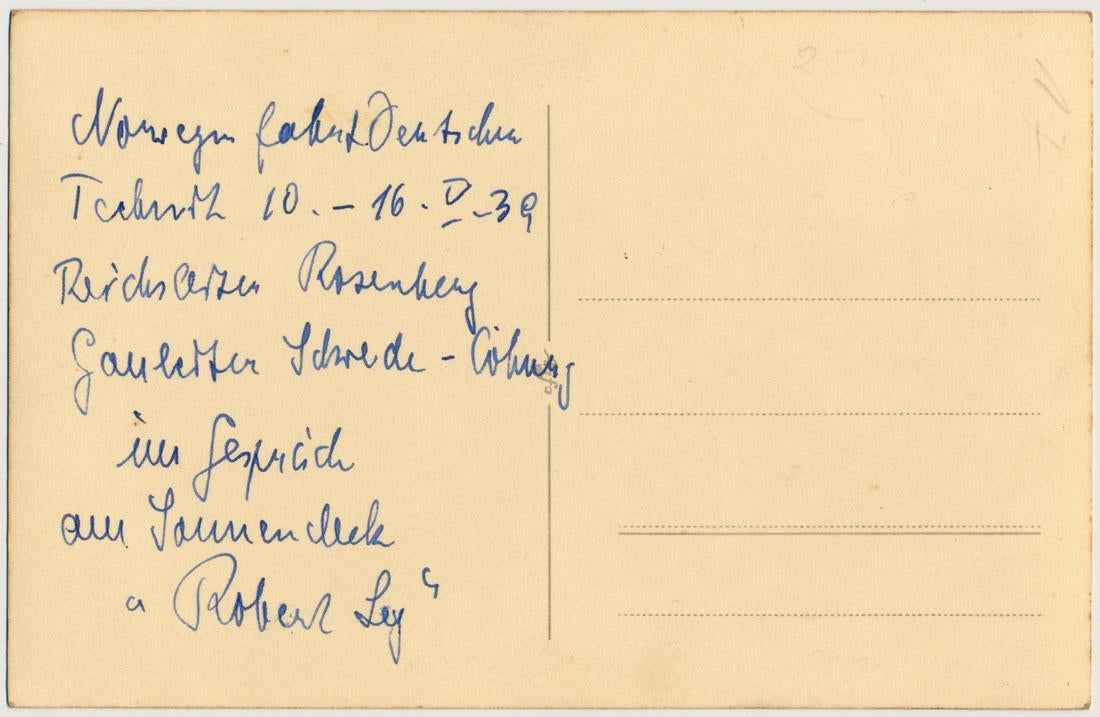 Norwegenfahrt Deutscher
Technik 10. – 16. V. 39
Reichsleiter Rosenberg
Gauleiter Schwede - Coburg
im Gespräch
am Sonnendeck
"Robert Ley"